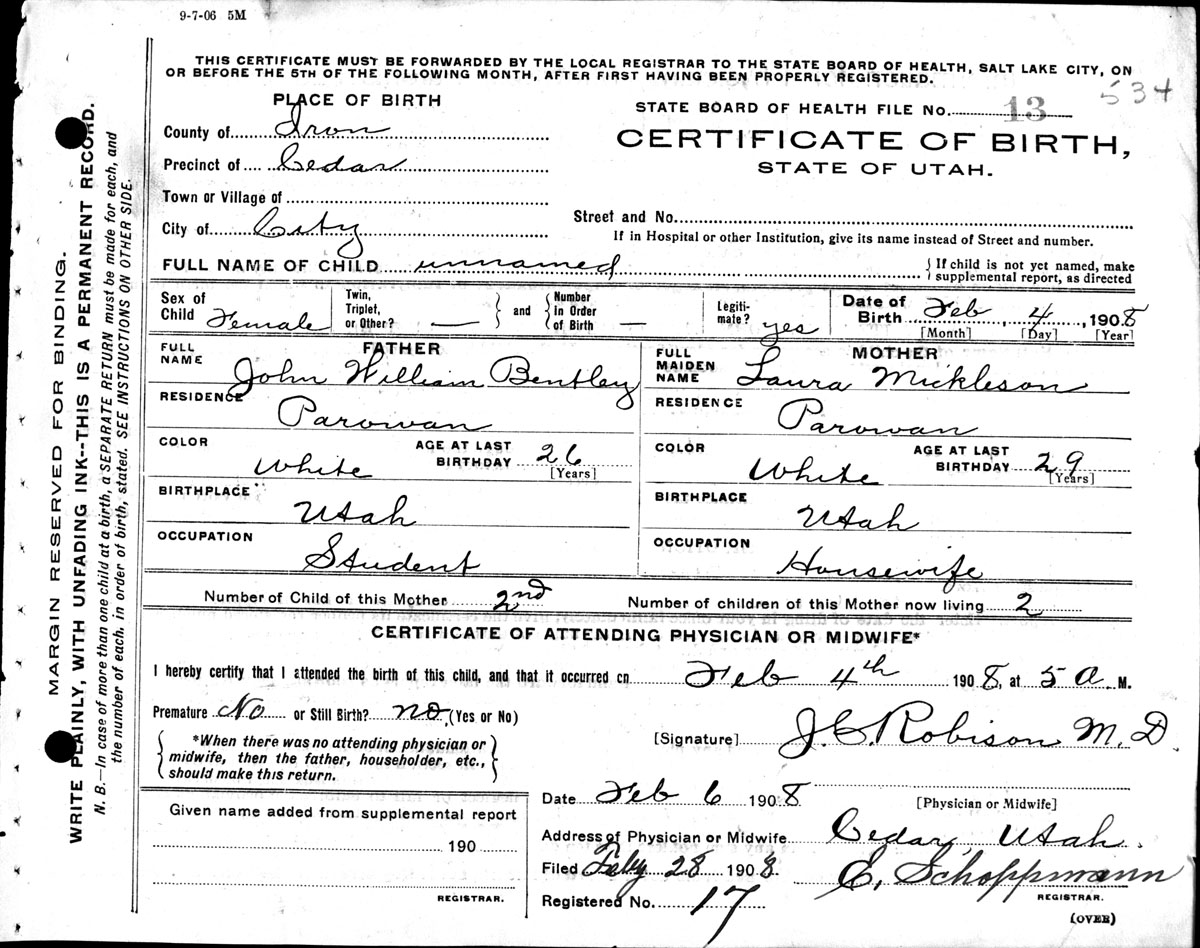 9-7-06 5M
THIS CERTIFICATE MUST BE FORWARDED BY THE LOCAL REGISTRAR TO THE STATE BOARD OF HEALTH, SALT LAKE CITY, ON
OR BEFORE THE 5TH OF THE FOLLOWING MONTH, AFTER FIRST HAVING BEEN PROPERLY REGISTERED.
534
PLACE OF BIRTH
STATE BOARD OF HEALTH FILE No. 13
County of Iron
CERTIFICATE OF BIRTH,
STATE OF UTAH.
Precinct of Cedar
Town or Village of
Street and No.
City of City
If in Hospital or other Institution, give its name instead of Street and number.
FULL NAME OF CHILD unnamed
{ If child is not yet named, make
supplemental report, as directed
Sex of Child Female
Twin, Triplet, or Other? —
and
Number in Order of Birth —
Legiti-mate? yes
Date of Birth Feb, 4, 1908
[Month] [Day] [Year]
FATHER
FULL NAME John William Bentley
RESIDENCE Parowan
COLOR White
AGE AT LAST BIRTHDAY 26
[Years]
BIRTHPLACE Utah
OCCUPATION Student
MOTHER
FULL MAIDEN NAME Laura Mickleson
RESIDENCE Parowan
COLOR White
AGE AT LAST BIRTHDAY 29
[Years]
BIRTHPLACE Utah
OCCUPATION Housewife
Number of Child of this Mother 2nd
Number of children of this Mother now living 2
CERTIFICATE OF ATTENDING PHYSICIAN OR MIDWIFE*
I hereby certify that I attended the birth of this child, and that it occurred on Feb 4th 1908, at 5 A. M.
Premature No or Still Birth? no (Yes or No)
*When there was no attending physician or
midwife, then the father, householder, etc.,
should make this return.
[Signature] J.C. Robison M.D.
[Physician or Midwife]
Date Feb 6 1908
Given name added from supplemental report
190
REGISTRAR.
Address of Physician or Midwife Cedar, Utah.
Filed Feby 28 1908.
E. Schoppmann
REGISTRAR.
Registered No. 17
(OVER)
MARGIN RESERVED FOR BINDING.
WRITE PLAINLY, WITH UNFADING INK--THIS IS A PERMANENT RECORD.
N. B.—In case of more than one child at a birth, a SEPARATE RETURN must be made for each, and
the number of each, in order of birth, stated. SEE INSTRUCTIONS ON OTHER SIDE.